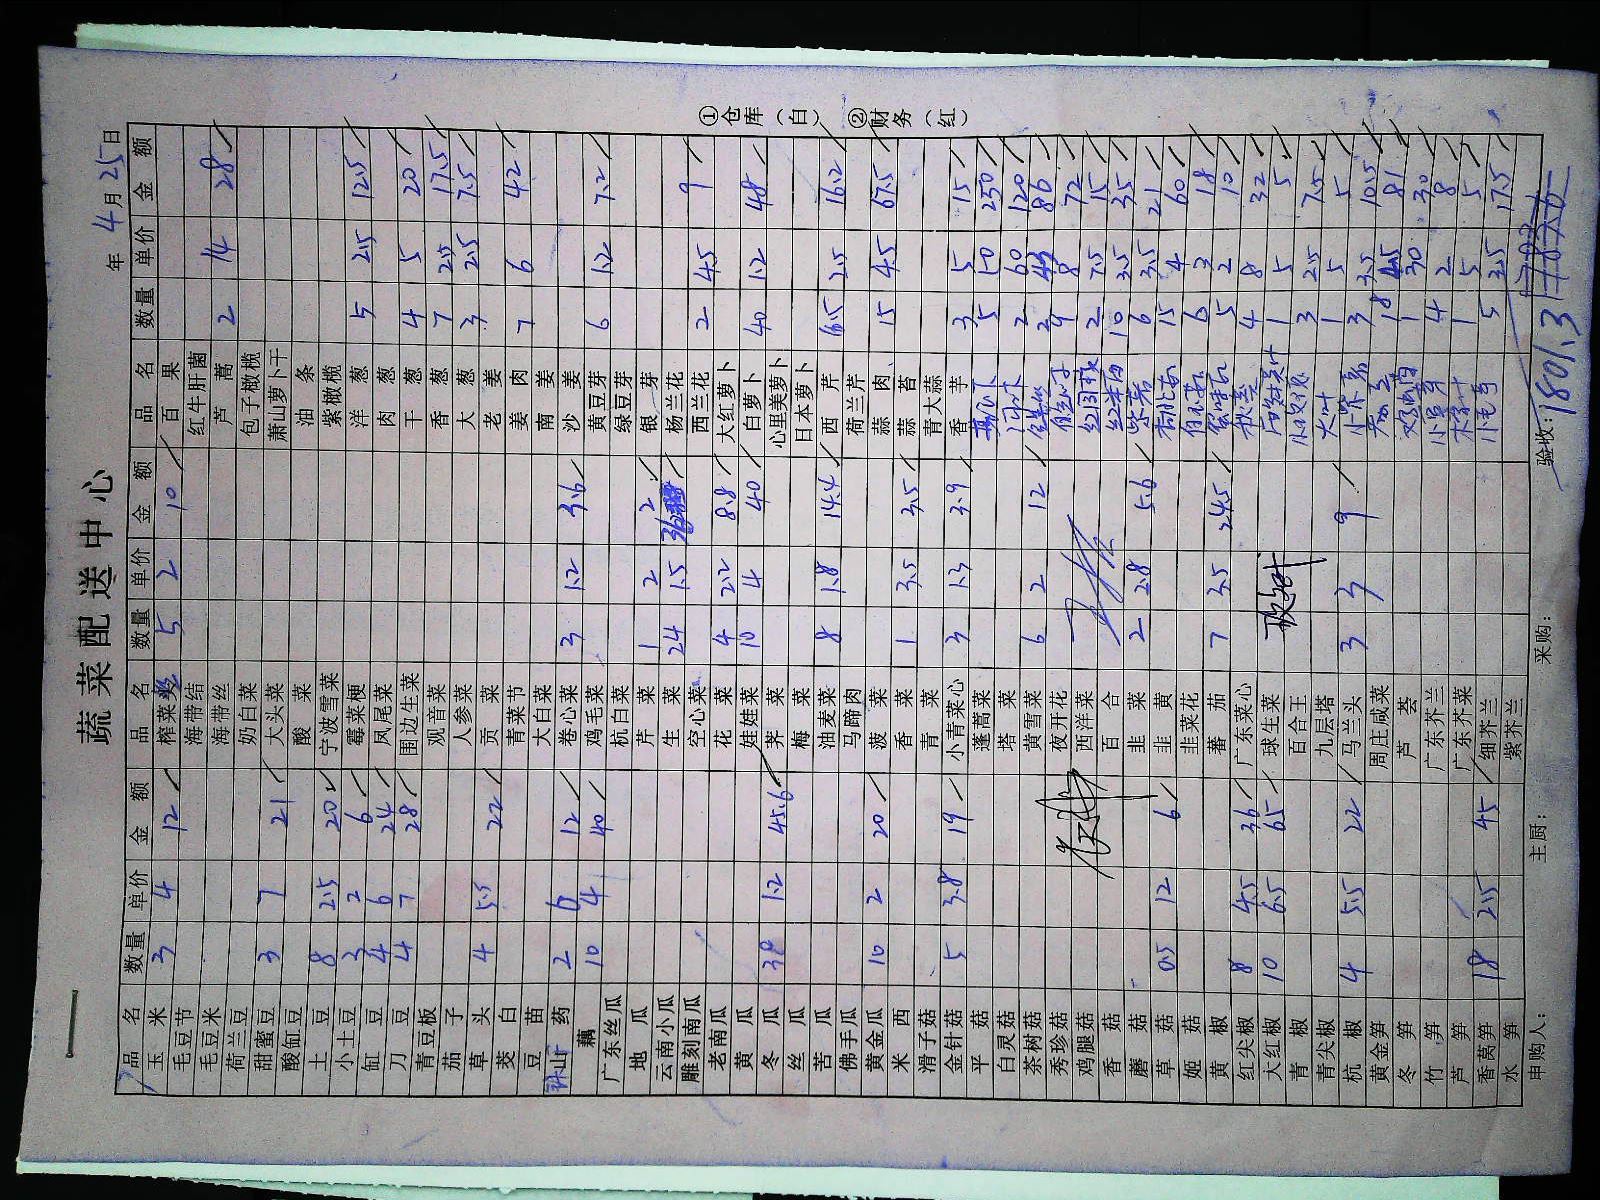 蔬菜配送中心
年 4月25日
品名 数量 单价 金额 品名 数量 单价 金额 品名 数量 单价 金额
玉米 3 4 12 榨菜丝 5 2 10 百果
毛豆节 海带结 红牛肝菌
毛豆米 海带丝 芦蒿 2 14 28
荷兰豆 奶白菜 包子橄榄
甜蜜豆 3 7 21 大头菜 萧山萝卜干
酸缸豆 酸菜 油条
土豆 8 2.5 20 宁波雪菜 紫橄榄
小土豆 3 2 6 霉菜梗 洋葱 5 2.5 12.5
缸豆 4 6 24 凤尾菜 肉葱
刀豆 4 7 28 围边生菜 干葱 4 5 20
青豆板 观音菜 香葱 7 2.5 17.5
茄子 人参菜 大葱 3 2.5 7.5
草头 4 5.5 22 贡菜 老姜
茭白 青菜节 姜肉 7 6 42
豆苗 大白菜 南姜
山药 2 6 12 卷心菜 3 1.2 3.6 沙姜
藕 10 4 40 鸡毛菜 黄豆芽 6 1.2 7.2
广东丝瓜 杭白菜 绿豆芽
地瓜 芹菜 1 2 2 银芽
云南小瓜 生菜 24 1.5 36 杨兰花
雕刻南瓜 空心菜 西兰花 2 4.5 9
老南瓜 花菜 4 2.2 8.8 大红萝卜
黄瓜 娃娃菜 10 4 40 白萝卜 40 1.2 48
冬瓜 38 1.2 45.6 荠菜 心里美萝卜
丝瓜 梅菜 日本萝卜
苦瓜 油麦菜 8 1.8 14.4 西芹 6.5 2.5 16.2
佛手瓜 马蹄肉 荷兰芹
黄金瓜 10 2 20 菠菜 蒜肉 15 4.5 67.5
米西 香菜 1 3.5 3.5 蒜苔
滑子菇 青菜 青大蒜
金针菇 5 3.8 19 小青菜心 3 1.3 3.9 香芋 3 5 15
平菇 蓬蒿菜 5 50 250
白灵菇 塔菜 2 60 120
茶树菇 黄雪菜 6 2 12 2 43 86
秀珍菇 夜开花 9 8 72
鸡腿菇 西洋菜 2 7.5 15
香菇 百合 10 3.5 35
蘑菇 韭菜 2 2.8 5.6 6 3.5 21
草菇 0.5 12 6 韭黄 15 4 60
姬菇 韭菜花 6 3 18
黄椒 蕃茄 7 3.5 24.5 5 2 10
红尖椒 8 4.5 36 广东菜心 4 8 32
大红椒 10 6.5 65 球生菜 1 5 5
青椒 百合王 3 2.5 7.5
青尖椒 九层塔 大叶 1 5 5
杭椒 4 5.5 22 马兰头 3 3 9 3 3.5 10.5
黄金笋 周庄咸菜 18 4.5 81
冬笋 芦荟 1 30 30
竹笋 广东芥兰 4 2 8
芦笋 广东芥菜 1 5 5
香莴笋 18 2.5 45 细芥兰 5 3.5 17.5
水笋 紫芥兰
申购人: 主厨: 采购: 验收: 1801.3
①仓库(白) ②财务(红)